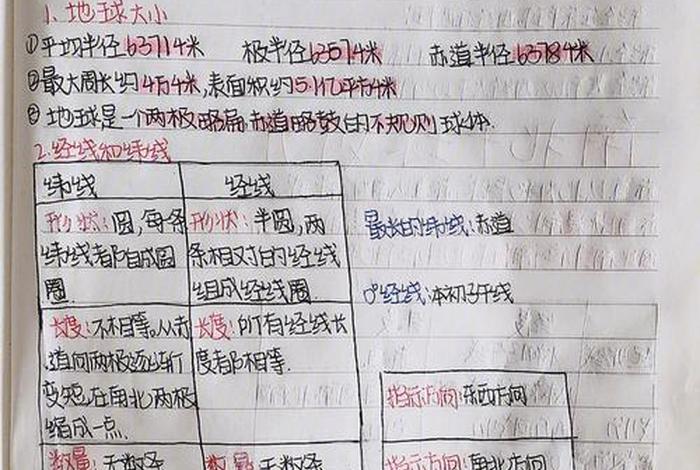 1、地球大小
①平均半径6371千米 极半径6357千米 赤道半径6378千米
②最大周长约4万千米,表面积约5.1亿平方千米
③地球是一个两极略扁,赤道略鼓的不规则球体.
2.经线和纬线
纬线 经线
形状:圆,每条
纬线都自成圆
圈
形状:半圆,两
条相对的经线
组成经线圈.
最长的纬线:赤道
0°经线:本初子午线
长度:不相等。从赤
道向两极逐渐
变短,在南北两极
缩成一点.
长度:所有经线长
度都相等.
指示方向:东西方向
数量:无数条 数量:无数条
指示方向:南北方向